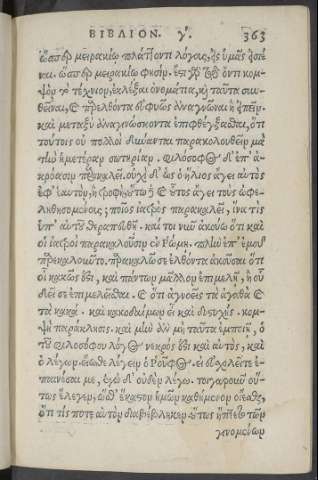 ΒΙΒΛΙΟΝ. γʹ. 363
ὥσπερ μειρακίῳ πλάττοντι λόγους, εἰς ὑμᾶς εἰσιέ-
ναι. ὥσπερ μειρακίῳ φησίν. ἔστι γὰρ τῷ ὄντι κομ-
ψὸν τὸ τέχνιον, ἐκλέξαι ὀνομάτια, καὶ ταῦτα συν-
θεῖναι, καὶ προελθόντα εὐφυῶς ἀναγνῶναι ἢ εἰπεῖν.
καὶ μεταξὺ ἀναγινώσκοντα ἐπιφθέγξασθαι, ὅτι
τούτοις οὐ πολλοὶ δύνανται παρακολουθεῖν μὰ
τὴν ὑμετέραν σωτηρίαν. Φιλόσοφος δ' ἐπ' ἀ-
κρόασιν παρακαλεῖ. οὐχὶ δ' ὡς ὁ ἥλιος ἄγει αὐτὸς
ἐφ' ἑαυτὸν, ἡ τροφὴ, οὕτω καὶ οὗτος ἄγει τοὺς ὠφε-
ληθησομένους; ποῖος ἰατρὸς παρακαλεῖ, ἵνα τὶς
ὑπ' αὐτοῦ θεραπευθῇ. καί τοι νῦν ἀκούω ὅτι καὶ
οἱ ἰατροὶ παρακαλοῦσιν ἐν Ῥώμῃ. πλὴν ἐπ' ἐμοῦ
παρεκαλοῦντο. παρακαλῶ σε ἐλθόντα ἀκοῦσαι ὅτι
σοι κακῶς ἐστι, καὶ πάντων μᾶλλον ἐπιμελῇ, ἢ οὗ
δεῖ σε ἐπιμελεῖσθαι. καὶ ὅτι ἀγνοεῖς τὰ ἀγαθὰ καὶ
τὰ κακά. καὶ κακοδαίμων εἶ καὶ δυστυχής. κομ-
ψὴ παράκλησις. καὶ μὴν ἂν μὴ ταῦτα ἐμποιῇ, ὁ
τοῦ φιλοσόφου λόγος νεκρός ἐστι καὶ αὐτὸς, καὶ
ὁ λέγων. εἴωθε λέγειν ὁ Ῥοῦφος. εἰ εὐσχολεῖτε ἐ-
παινέσαι με, ἐγὼ δ' οὐδὲν λέγω. τοιγαροῦν οὕ-
τως ἔλεγεν, ὥσθ' ἕκαστον ἡμῶν καθήμενον οἴεσθαι,
ὅτι τίς ποτε αὐτὸν διαβέβληκεν. οὕτως ἥπτετο τῶν
γενομένων